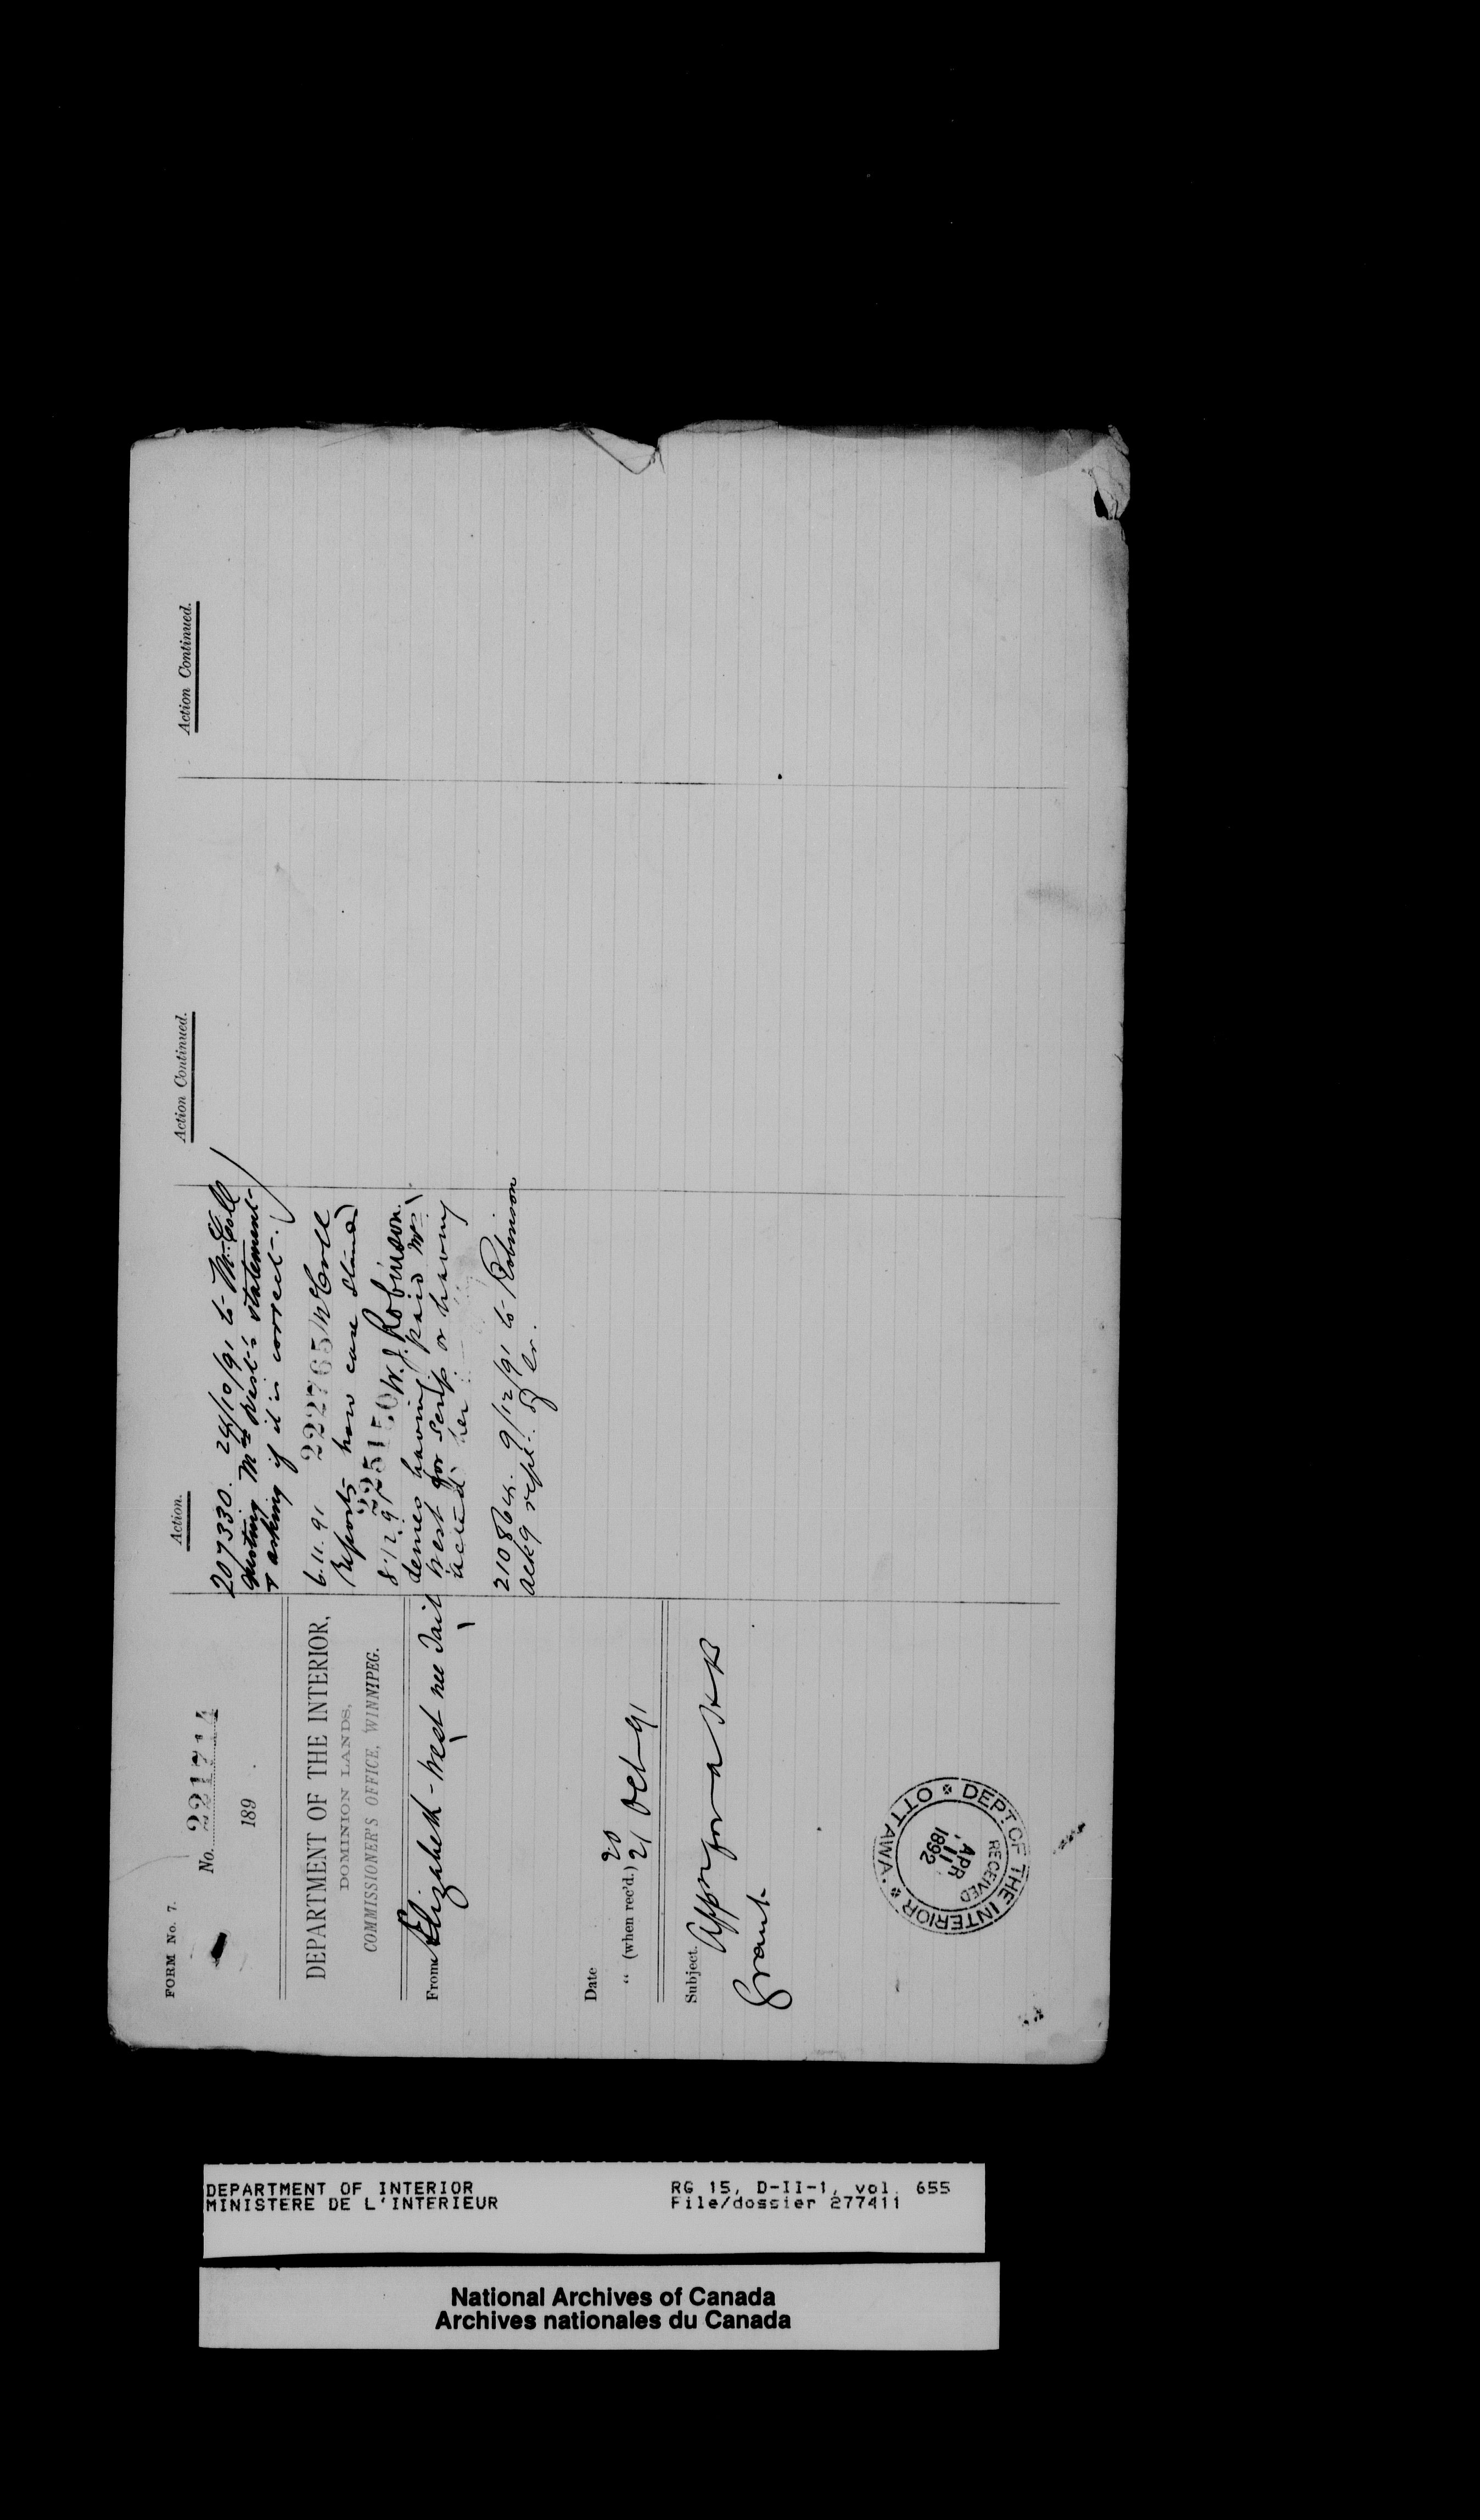 FORM No. 7.
No. 221714
189 .
DEPARTMENT OF THE INTERIOR,
DOMINION LANDS,
COMMISSIONER'S OFFICE, WINNIPEG.
From Elizabeth West nee Tait
Date 20
" (when rec'd.) 21 Oct 91
Subject. Appn for a H B
Grant
DEPT OF THE INTERIOR
OTTAWA.
RECEIVED
APR
11
1892
Action.
207330. 24/10/91 to McColl
quoting Mrs West's statement
& asking if it is correct.
6.11.91 222765 McColl
Reports how case stands
8.12.91 225150 W. J. Robinson.
denies having paid Mrs
West for scrip or having
her
210864. 9/12/91 to Robinson
ackg rept. of lr.
Action Continued.
Action Continued.
DEPARTMENT OF INTERIOR RG 15, D-II-1, vol. 655
MINISTERE DE L'INTERIEUR File/dossier 277411
National Archives of Canada
Archives nationales du Canada